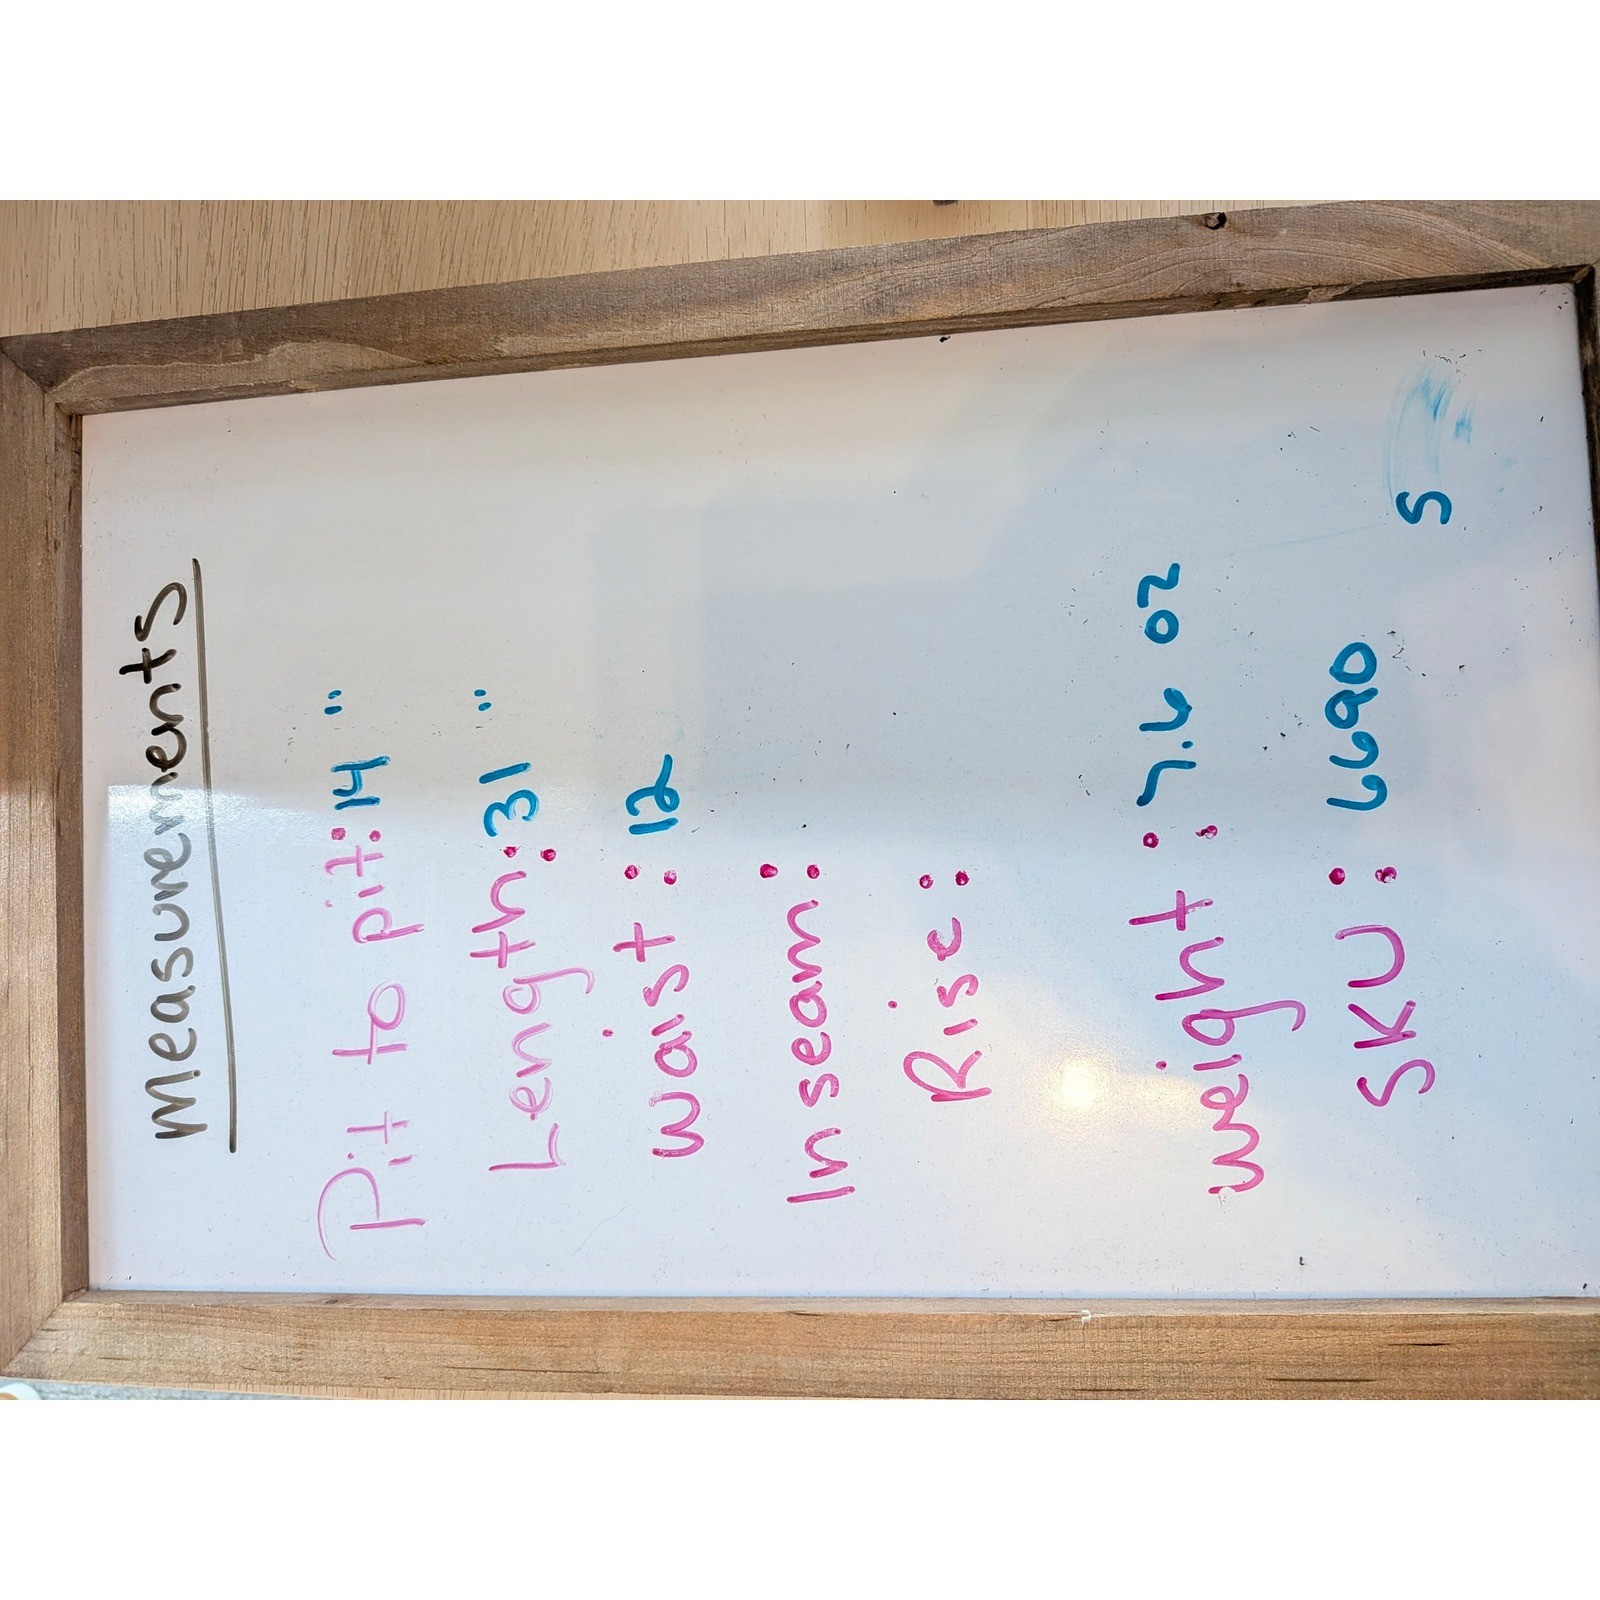 Measurements
Pit to pit: 14"
Length: 31"
Waist: 12
Inseam:
Rise:
Weight: 7.6 oz
SKU: 6690
S